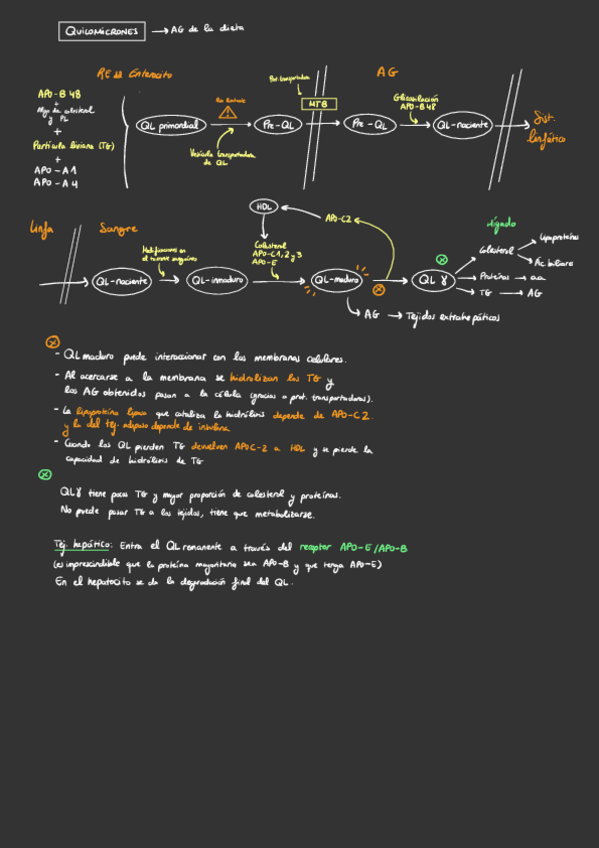 QUILOMICRONES → AG de la dieta
RE del Enterocito
AG
APO-B48
+
Algo de colesterol
y PL
+
Partícula liviana (TG)
+
APO-A1
APO-A4
QL primordial
Vesícula transportadora
de QL
Pre-QL
Prot. transportadora
MTB
Pre-QL
Glicosilación
APO-B48
QL-naciente
Sist.
linfático
Linfa
Sangre
QL-naciente
Modificaciones en
el torrente sanguíneo
QL-inmaduro
HDL
Colesterol
APO-C1, 2 y 3
APO-E
APO-C2
QL-maduro
AG → Tejidos extrahepáticos
QL γ
Hígado
Colesterol
Lipoproteínas
Ác. biliares
Proteínas → a.a.
TG → AG
- QL maduro puede interaccionar con las membranas celulares.
- Al acercarse a la membrana se hidrolizan los TG y
los AG obtenidos pasan a la célula (gracias a prot. transportadoras).
- La lipoproteína lipasa que cataliza la hidrólisis depende de APO-C2.
y la del tej. adiposo depende de insulina
- Cuando los QL pierden TG devuelven APOC-2 a HDL y se pierde la
capacidad de hidrólisis de TG
QL γ tiene pocos TG y mayor proporción de colesterol y proteínas.
No puede pasar TG a los tejidos, tiene que metabolizarse.
Tej. hepático: Entra el QL remanente a través del receptor APO-E/APO-B
(es imprescindible que la proteína mayoritaria sea APO-B y que tenga APO-E)
En el hepatocito se da la degradación final del QL.